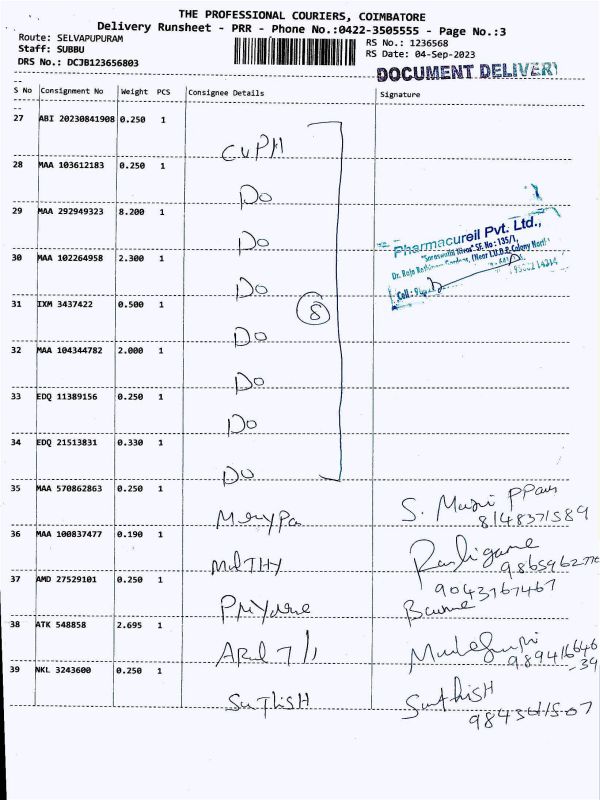 THE PROFESSIONAL COURIERS, COIMBATORE
Delivery Runsheet - PRR - Phone No.:0422-3505555 - Page No.:3
Route: SELVAPUPURAM
RS No.: 1236568
Staff: SUBBU
RS Date: 04-Sep-2023
DRS No.: DCJB123656803
DOCUMENT DELIVERY
S No Consignment No Weight PCS Consignee Details Signature
27 ABI 20230841908 0.250 1
CUPH
28 MAA 103612183 0.250 1
Do
29 MAA 292949323 8.200 1
Do
Pharmacureil Pvt. Ltd.,
"Saraswathi Nivas" SF. No : 135/1,
30 MAA 102264958 2.300 1
Do
31 IXM 3437422 0.500 1
8
Do
32 MAA 104344782 2.000 1
Do
33 EDQ 11389156 0.250 1
Do
34 EDQ 21513831 0.330 1
Do
35 MAA 570862863 0.250 1
8148371589
36 MAA 100837477 0.190 1
37 AMD 27529101 0.250 1
9043767467
38 ATK 548858 2.695 1
39 NKL 3243600 0.250 1
SuTHisH SuthisH